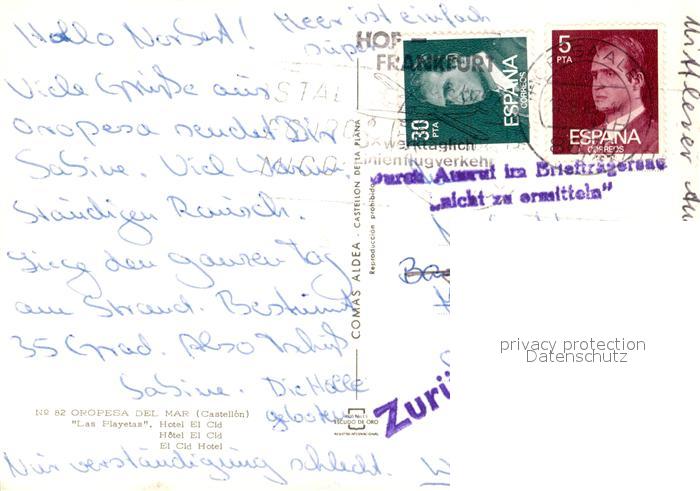 Hallo Norbert! Meer ist einfach
super
Viele Grüße aus
Oropesa sendet Dir
Sabine. Viel
Ständigen Rausch.
Liege den ganzen Tag
am Strand. Bestimmt
35 Grad. Also Tschüß
Sabine. Die Hölle
geboten
Nur verständigung schlecht.
Nº 82 OROPESA DEL MAR (Castellón)
"Las Playetas". Hotel El Cid
Hôtel El Cid
El Cid Hotel
COMAS ALDEA - CASTELLON DE LA PLANA
Reproducción prohibida
ESCUDO DE ORO
HOF-
FRANKFURT
werktäglich
Linienflugverkehr
30 PTA
ESPAÑA
CORREOS
5
PTA
ESPAÑA
CORREOS
Durch Ausruf im Briefträgersaal
„nicht zu ermitteln"
Zurü
privacy protection
Datenschutz